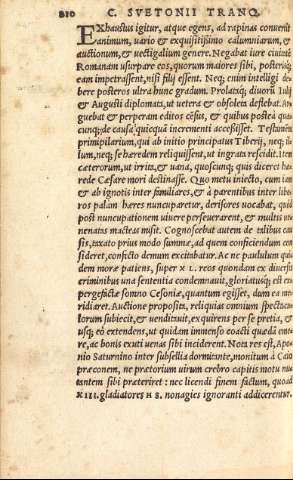 210 C. SVETONII TRANQ.
EXhaustus igitur, atque egens, ad rapinas conuertit
animum, uario & exquisitißimo calumniarum, &
auctionum, & uectigalium genere. Negabat iure ciuitatē
Romanam usurpare eos, quorum maiores sibi, posterisq;
eam impetrassent, nisi filij essent. Neq; enim intelligi de
bere posteros ultra hunc gradum. Prolatisq; diuorū Iulij
& Augusti diplomatis, ut uetera & obsoleta deflebat. Ar
guebat & perperam editos cēsus, & quibus postea qua
cunq; de causa quicquā incrementi acceßisset. Testamēta
primipilarium, qui ab initio principatus Tiberij, neq; il
lum, neq; se hæredem reliquissent, ut ingrata rescidit. Item
cæterorum, ut irrita, & uana, quoscunq; quis diceret hæ
rede Cæsare mori destinasse. Quo metu iniecto, cum iam
& ab ignotis inter familiares, & à parentibus inter libe
ros palàm hæres nuncuparetur, derisores uocabat, quòd
post nuncupationem uiuere perseuerarent, & multis ue
nenatas macteas misit. Cognoscebat autem de talibus cau
sis, taxato prius modo summæ, ad quem conficiendum con
sideret, confecto demum excitabatur. Ac ne paululum qui
dem moræ patiens, super XL. reos quondam ex diuersis
criminibus una sententia condemnauit, gloriatusq; est ex
pergefactæ somno Cesoniæ, quantum egisset, dum ea me
ridiaret. Auctione proposita, reliquias omnium spectacu
lorum subiecit, & uenditauit, exquirens per se pretia, &
usq; eò extendens, ut quidam immenso coacti quædā eme
re, ac bonis exuti uenas sibi inciderent. Nota res est, Apo
nio Saturnino inter subsellia dormitante, monitum à Caio
præconem, ne prætorium uirum crebro capitis motu nu
tantem sibi præteriret : nec licendi finem factum, quoad
XIII. gladiatores HS. nonagies ignoranti addicerentur.